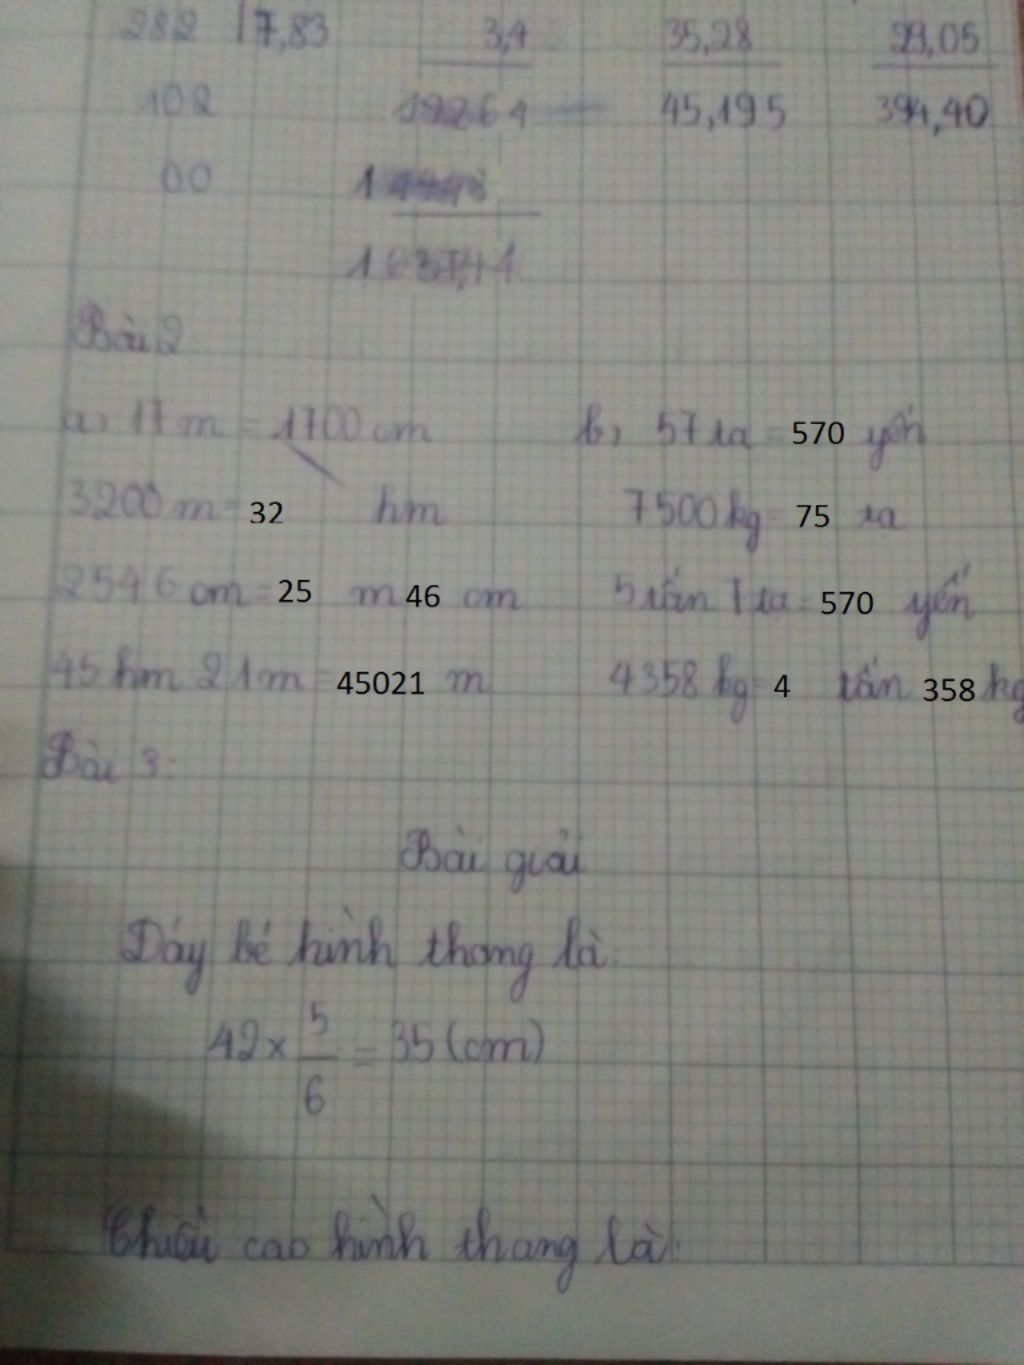 282 7,83 3,4 35,28 23,05
102 45,195 394,40
00
Bài 2
a) 17 m = 1700 cm b) 57 tạ = 570 yến
3200 m = 32 hm 7500 kg = 75 tạ
2546 cm = 25 m 46 cm 5 tấn 7 tạ = 570 yến
45 hm 21 m = 45021 m 4358 kg = 4 tấn 358 kg
Bài 3:
Bài giải
Đáy bé hình thang là:
42 × 5/6 = 35 (cm)
Chiều cao hình thang là: